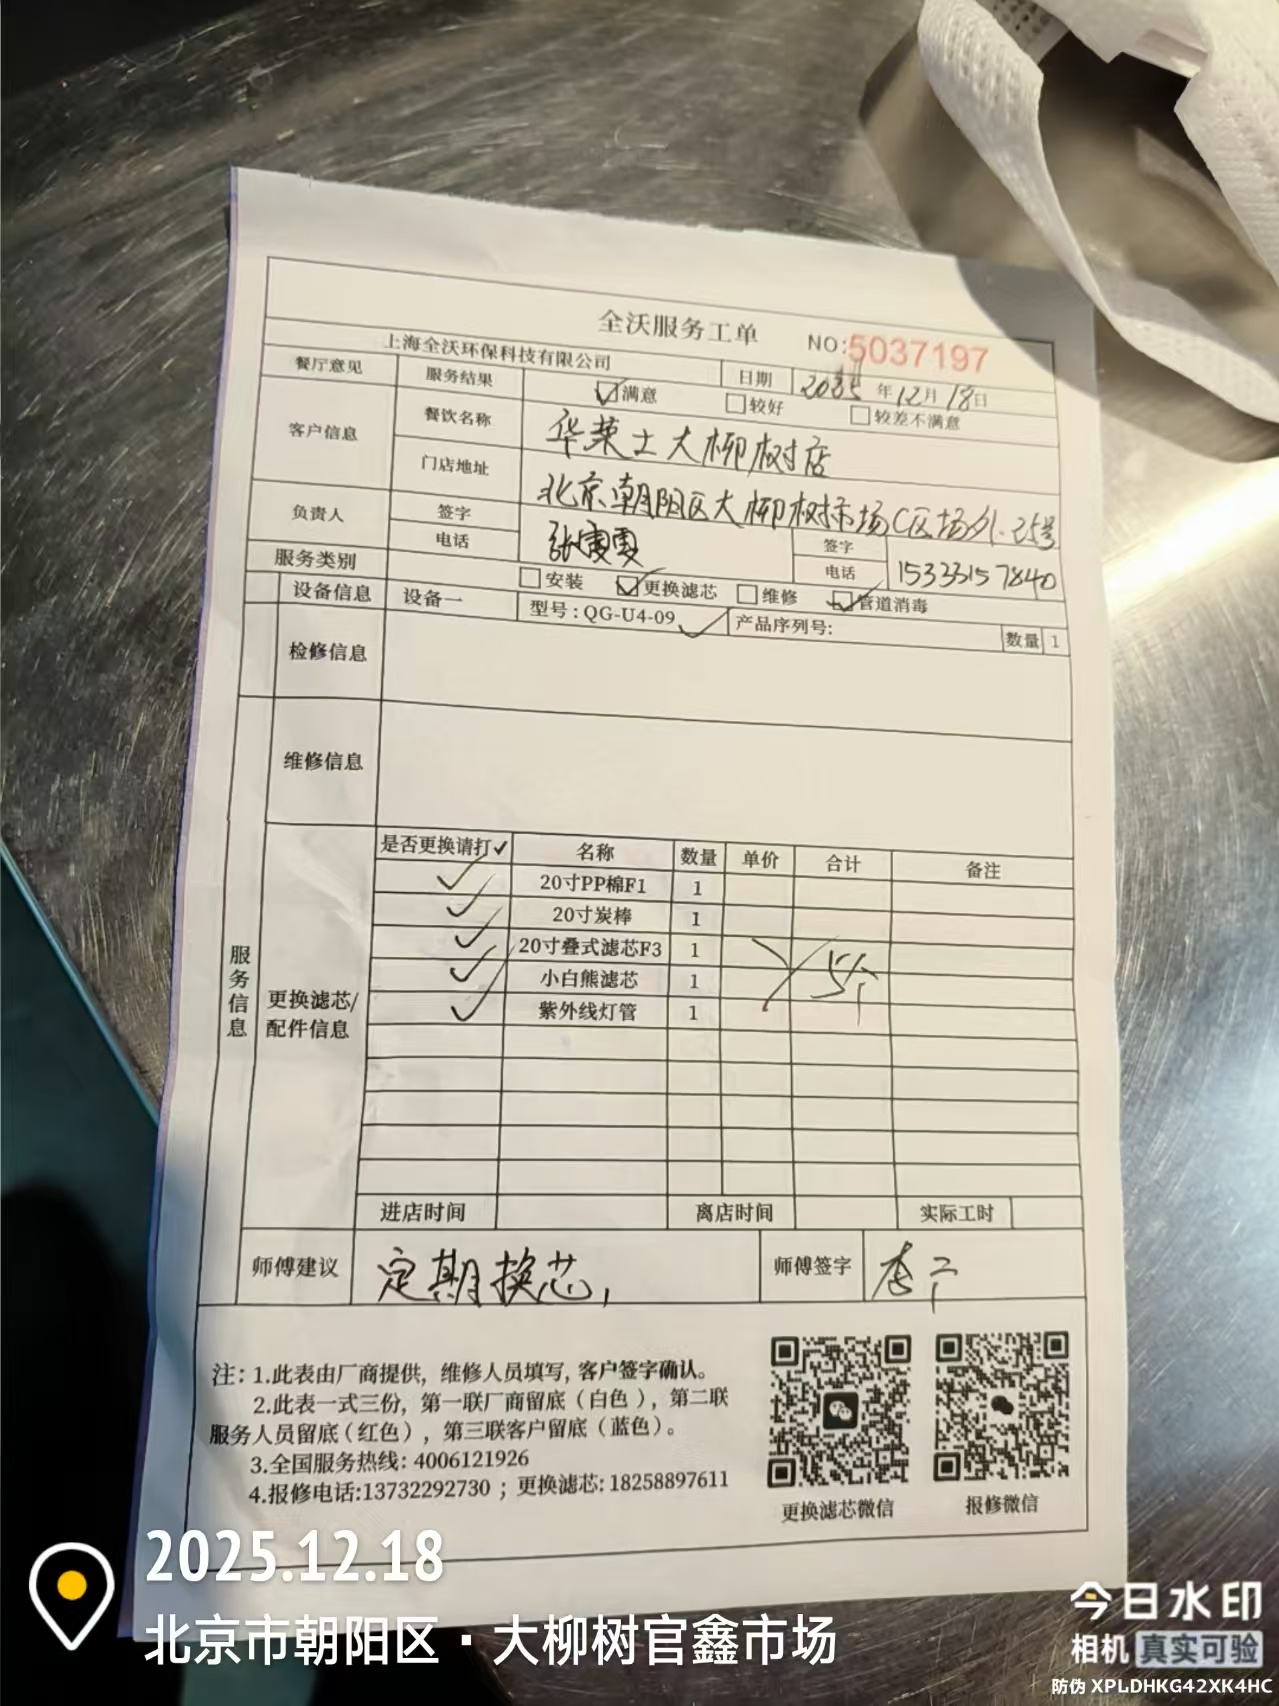 全沃服务工单 NO:5037197
上海全沃环保科技有限公司 日期 2025年12月18日
餐厅意见 服务结果 ☑满意 □较好 □较差不满意
客户信息 餐饮名称 华莱士大柳树店
门店地址 北京朝阳区大柳树市场C区场外.25号
负责人 签字 张雯雯 签字
电话 电话 15333157840
服务类别 □安装 ☑更换滤芯 □维修 ☑管道消毒
设备信息 设备一 型号:QG-U4-09 ✓ 产品序列号: 数量 1
检修信息
维修信息
服务信息
更换滤芯/
配件信息
是否更换请打✓ 名称 数量 单价 合计 备注
✓ 20寸PP棉F1 1
✓ 20寸炭棒 1
✓ 20寸叠式滤芯F3 1
✓ 小白熊滤芯 1
✓ 紫外线灯管 1
5个
进店时间 离店时间 实际工时
师傅建议 定期换芯, 师傅签字 李
注: 1.此表由厂商提供, 维修人员填写, 客户签字确认。
2.此表一式三份, 第一联厂商留底(白色), 第二联
服务人员留底(红色), 第三联客户留底(蓝色)。
3.全国服务热线: 4006121926
4.报修电话:13732292730 ; 更换滤芯: 18258897611
更换滤芯微信 报修微信
2025.12.18
北京市朝阳区·大柳树官鑫市场
今日水印
相机 真实可验
防伪 XPLDHKG42XK4HC